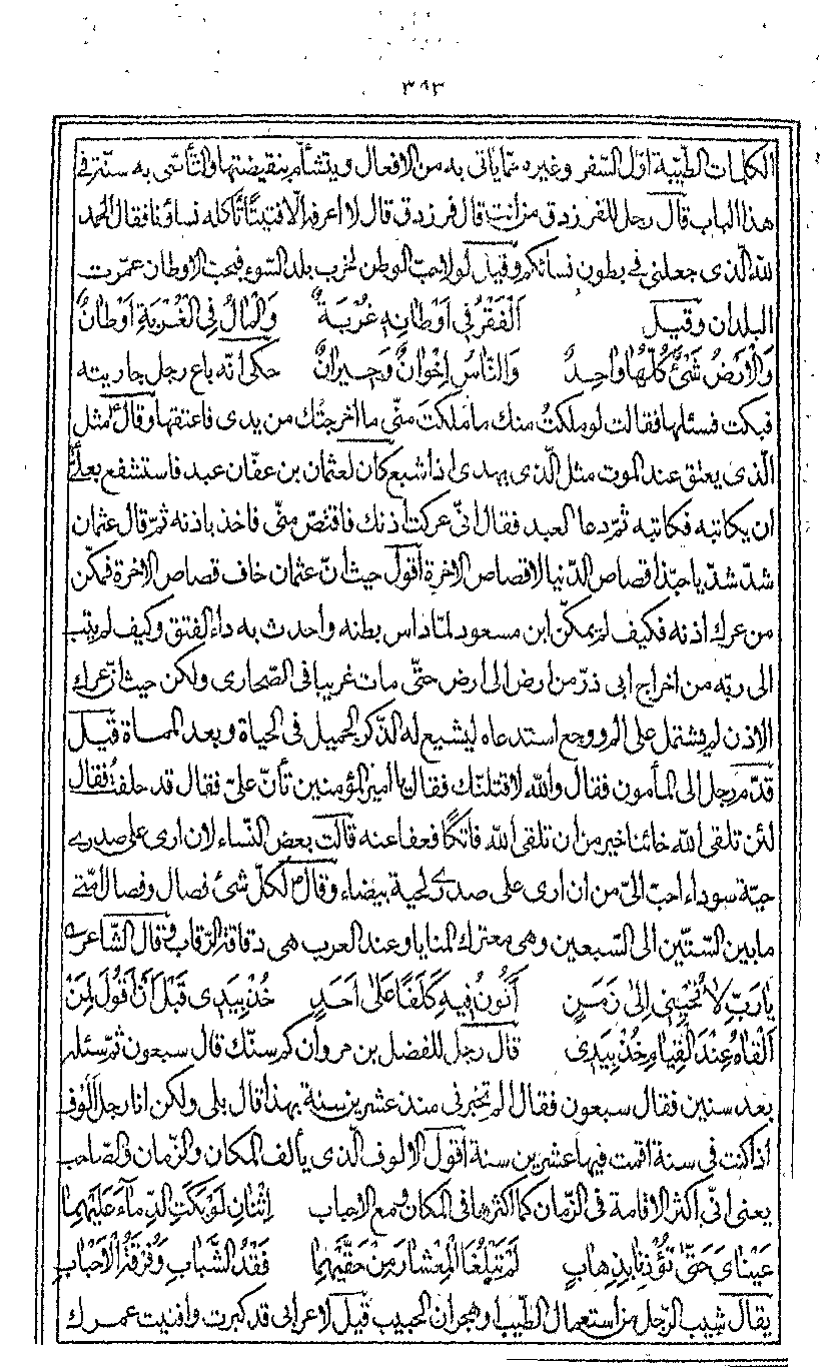 ٣٩٣
الكلمات الطيّبة اوّل السّفر وغيره ممّا ياتى به من الافعال ويتشأّم بنقيضتها والتّأسّى به سنّة فى
هذا الباب قال رجل للفرزدق من انت قال فرزدق قال لا اعرفه الّا فتيتًا تأكله نساؤنا فقال الحمد
للّه الّذى جعلنى فى بطون نسائكم وقيل لولا حبّ الوطن لخرب بلد السّوء فبحبّ الاوطان عمّرت
البلدان وقيل اَلْفَقْرُ فِى اَوْطَانِهِ غُرْبَةٌ وَالْمَالُ فِى الْغُرْبَةِ اَوْطَانٌ
وَالْاَرْضُ شَئٌ كُلُّهَا وَاحِدٌ وَالنَّاسُ اِخْوَانٌ وَجِيرَانٌ حكى انّه باع رجل جاريته
فبكت فسئلها فقالت لو ملكتُ منك ما ملكتَ منّى ما اخرجتك من يدى فاعتقها وقال مثل
الّذى يعتق عند الموت مثل الّذى يهدى اذا شبع كان لعثمان بن عفّان عبد فاستشفع بعلىّ
ان يكاتبه فكاتبه ثمّ دعا العبد فقال انّى عركت اذنك فاقتصّ منّى فاخذ باذنه ثمّ قال عثمان
شدّ شدّ يا حبّذا قصاص الدّنيا لا قصاص الاخرة اقول حيث انّ عثمان خاف قصاص الاخرة فمكّن
من عرك اذنه فكيف لم يمكّن ابن مسعود لمّا داس بطنه واحدث به داء الفتق وكيف لم يتب
الى ربّه من اخراج ابى ذرّ من ارض الى ارض حتّى مات غريبا فى الصّحارى ولكن حيث انّ عرك
الاذن لم يشتمل على الم ووجع استدعاه ليشيع له الذّكر الجميل فى الحياة وبعد المماة قيل
قدّم رجل الى المأمون فقال واللّه لاقتلنّك فقال يا امير المؤمنين تأنّ علىّ فقال قد حلفت فقال
لئن تلقى اللّه خائنا خير من ان تلقى اللّه فاتكًا فعفا عنه قالت بعض النّساء لان ارى على صدرى
حيّة سوداء احبّ الىّ من ان ارى على صدرى لحية بيضاء وقال لكلّ شئ فصال وفصال امّتى
ما بين السّتّين الى السّبعين وهى معترك المنايا وعند العرب هى دقاقة الرّقاب وقال الشّاعر
يَارَبِّ لَا تُحْيِنِى اِلَى زَمَنٍ اَكُونُ فِيهِ كَلَفًا عَلَى اَحَدٍ خُذْ بِيَدِى قَبْلَ اَنْ اَقُولَ لِمَنْ
اَلْقَاهُ عِنْدَ الْقِيَامِ خُذْ بِيَدِى قال رجل للفضل بن مروان كم سنّك قال سبعون ثمّ سئله
بعد سنين فقال سبعون فقال الم تخبرنى منذ عشرين سنة بهذا قال بلى ولكن انا رجل الوف
اذا كنت فى سنة اقمت فيها عشرين سنة اقول الالوف الّذى يألف المكان والزّمان والصّاحب
يعنى انّى اكثر الاقامة فى الزّمان كما اكثرها فى المكان ومع الاحباب اِثْنَانِ لَوْ بَكَتِ الدِّمَاءَ عَلَيْهِمَا
عَيْنَاىَ حَتَّى تُؤْذِنَا بِذِهَابٍ لَمْ تَبْلُغَا الْمِعْشَارَ مِنْ حَقَّيْهِمَا فَقْدُ الشَّبَابِ وَفُرْقَةُ الْاَحْبَابِ
يقال شيب الرّجل من استعمال الطّيب وهجران الحبيب قيل لاعرابى قد كبرت وافنيت عمرك